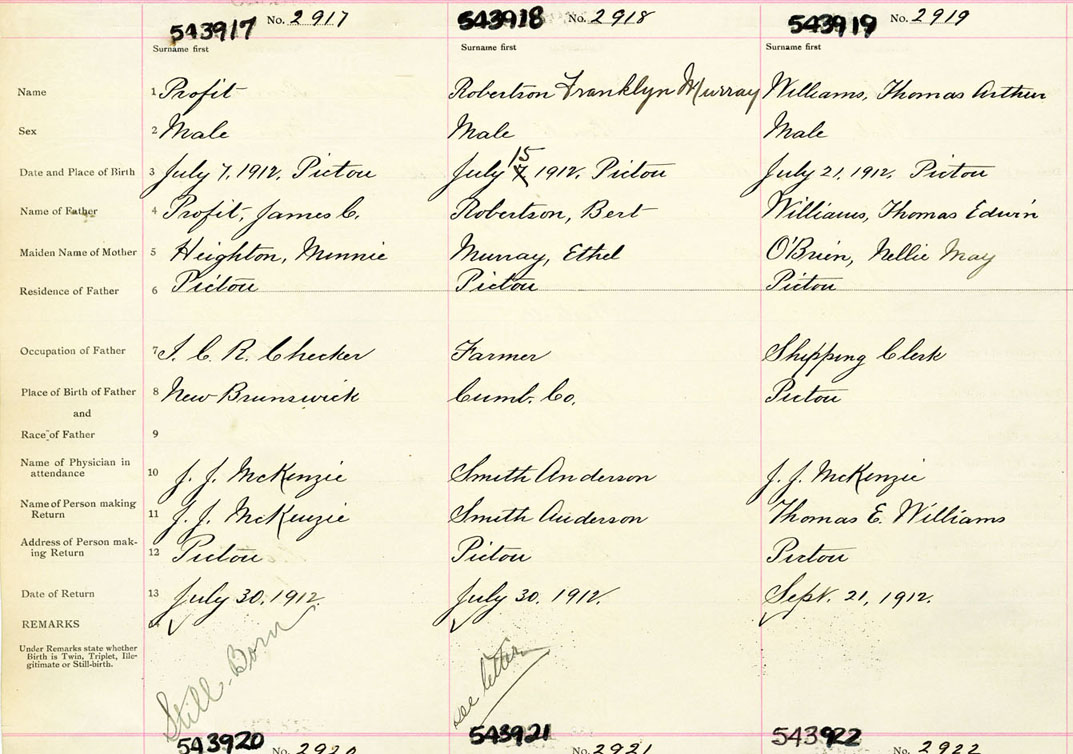 543917 No. 2917 543918 No. 2918 543919 No. 2919
Surname first Surname first Surname first
Name 1 Profit Robertson Franklyn Murray Williams, Thomas Arthur
Sex 2 Male Male Male
Date and Place of Birth 3 July 7, 1912. Pictou July 7 15 1912. Pictou July 21, 1912. Pictou
Name of Father 4 Profit, James C. Robertson, Bert Williams, Thomas Edwin
Maiden Name of Mother 5 Heighton, Minnie Murray, Ethel O'Brien, Nellie May
Residence of Father 6 Pictou Pictou Pictou
Occupation of Father 7 I. C. R. Checker Farmer Shipping Clerk
Place of Birth of Father 8 New Brunswick Cumb. Co. Pictou
and
Race of Father 9
Name of Physician in
attendance 10 J. J. McKenzie Smith Anderson J. J. McKenzie
Name of Person making
Return 11 J. J. McKenzie Smith Anderson Thomas E. Williams
Address of Person mak-
ing Return 12 Pictou Pictou Pictou
Date of Return 13 July 30, 1912. July 30, 1912. Sept. 21, 1912.
REMARKS
Under Remarks state whether
Birth is Twin, Triplet, Ille-
gitimate or Still-birth.
Still-Born see letter
543920 No. 2920 543921 No. 2921 543922 No. 2922